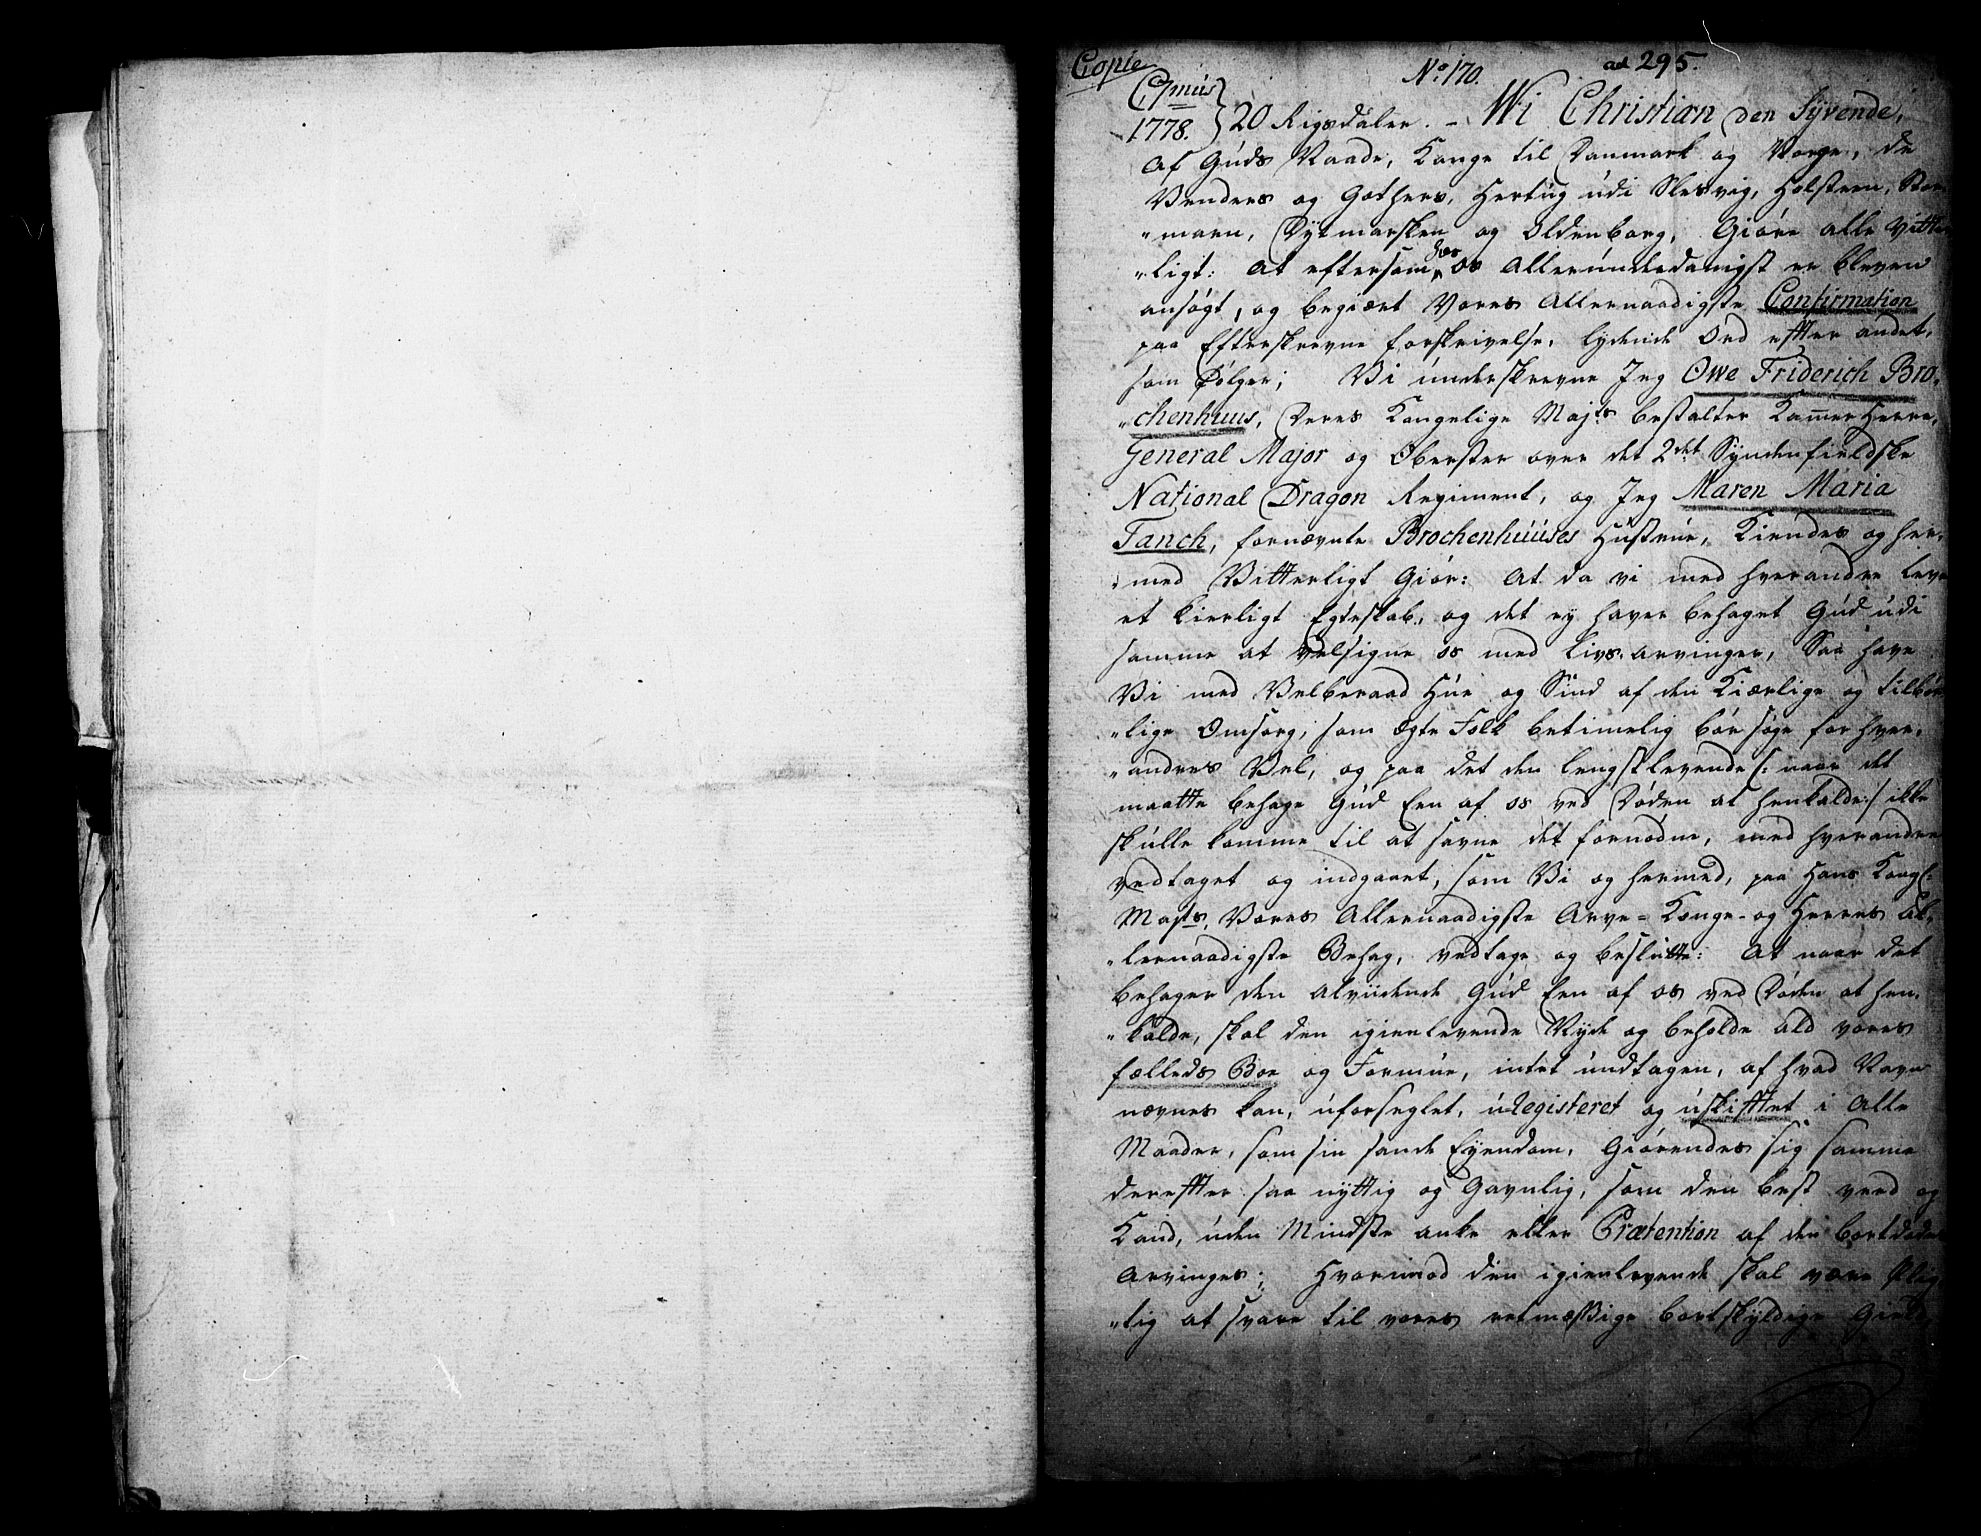 Copie
No 170.
ad 295.
C7mus
1778. } 20 Rigsdaler. - Wi Christian den Syvende,
Af Guds Naade, Konge til Danmark og Norge, de
Venders og Gothers, Hertug udi Slesvig, Holsteen, Stor-
"marn, Dytmarsken og Oldenborg, Giøre alle Vitter-
"ligt: At eftersom hos os Allerunderdanigst er bleven
ansøgt, og begiært Vores Allernaadigste Confirmation
paa Efterskrevne forskrivelse, lydende Ord efter andet,
som følger; Vi underskrevne Jeg Owe Friderich Bro-
"chenhuus, Deres Kongelige Majts bestalter KammerHerre,
General Major og Oberster over det 2det Syndenfieldske
National Dragon Regiment, og Jeg Maren Maria
Tanch, fornævnte Brochenhuuses Hustrue, Kiendes og her-
"med Vitterligt Giør: At da vi med hverandre leve
et kierligt Egteskab, og det ey haver behaget Gud udi
samme at velsigne os med Livs-arvinger, Saa have
Vi med Velberaad Hue og Sind af den Kiærlige og tilbør-
"lige Omsorg, som Egte Folk betimelig bør søge for hver-
"andres Vel, og paa det den lengstlevende /: naar det
maatte behage Gud Een af os ved Døden at henkalde :/ ikke
skulle komme til at savne det fornødne, med hverandre
vedtaget og indgaaet, som Vi og hermed, paa Hans Kongl:
Majts, Vores Allernaadigste Arve-Konge- og Herres Al-
"lernaadigste Behag, vedtage og beslutte: At naar det
behager den Alviidende Gud Een af os ved Døden at hen-
"kalde, skal den igienlevende Nyde og beholde ald vores
fælleds Boe og Formue, intet undtagen, af hvad Navn
nævnes kan, uforseglet, uRegisteret og uskifftet i Alle
Maader, som sin sande Eyendom, Giørendes sig samme
derefter saa nyttig og Gavnlig, som den best veed og
Kand, uden Mindste anke eller Prætention af den bortdødes
Arvinger; Hvorimod den igienlevende skal være plig-
"tig at svare til vores retmæssige bortskyldige Gield